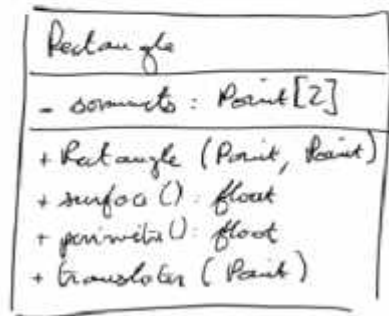 Rectangle
- sommets : Point[2]
+ Rectangle (Point, Point)
+ surface() : float
+ perimetre() : float
+ translater (Point)